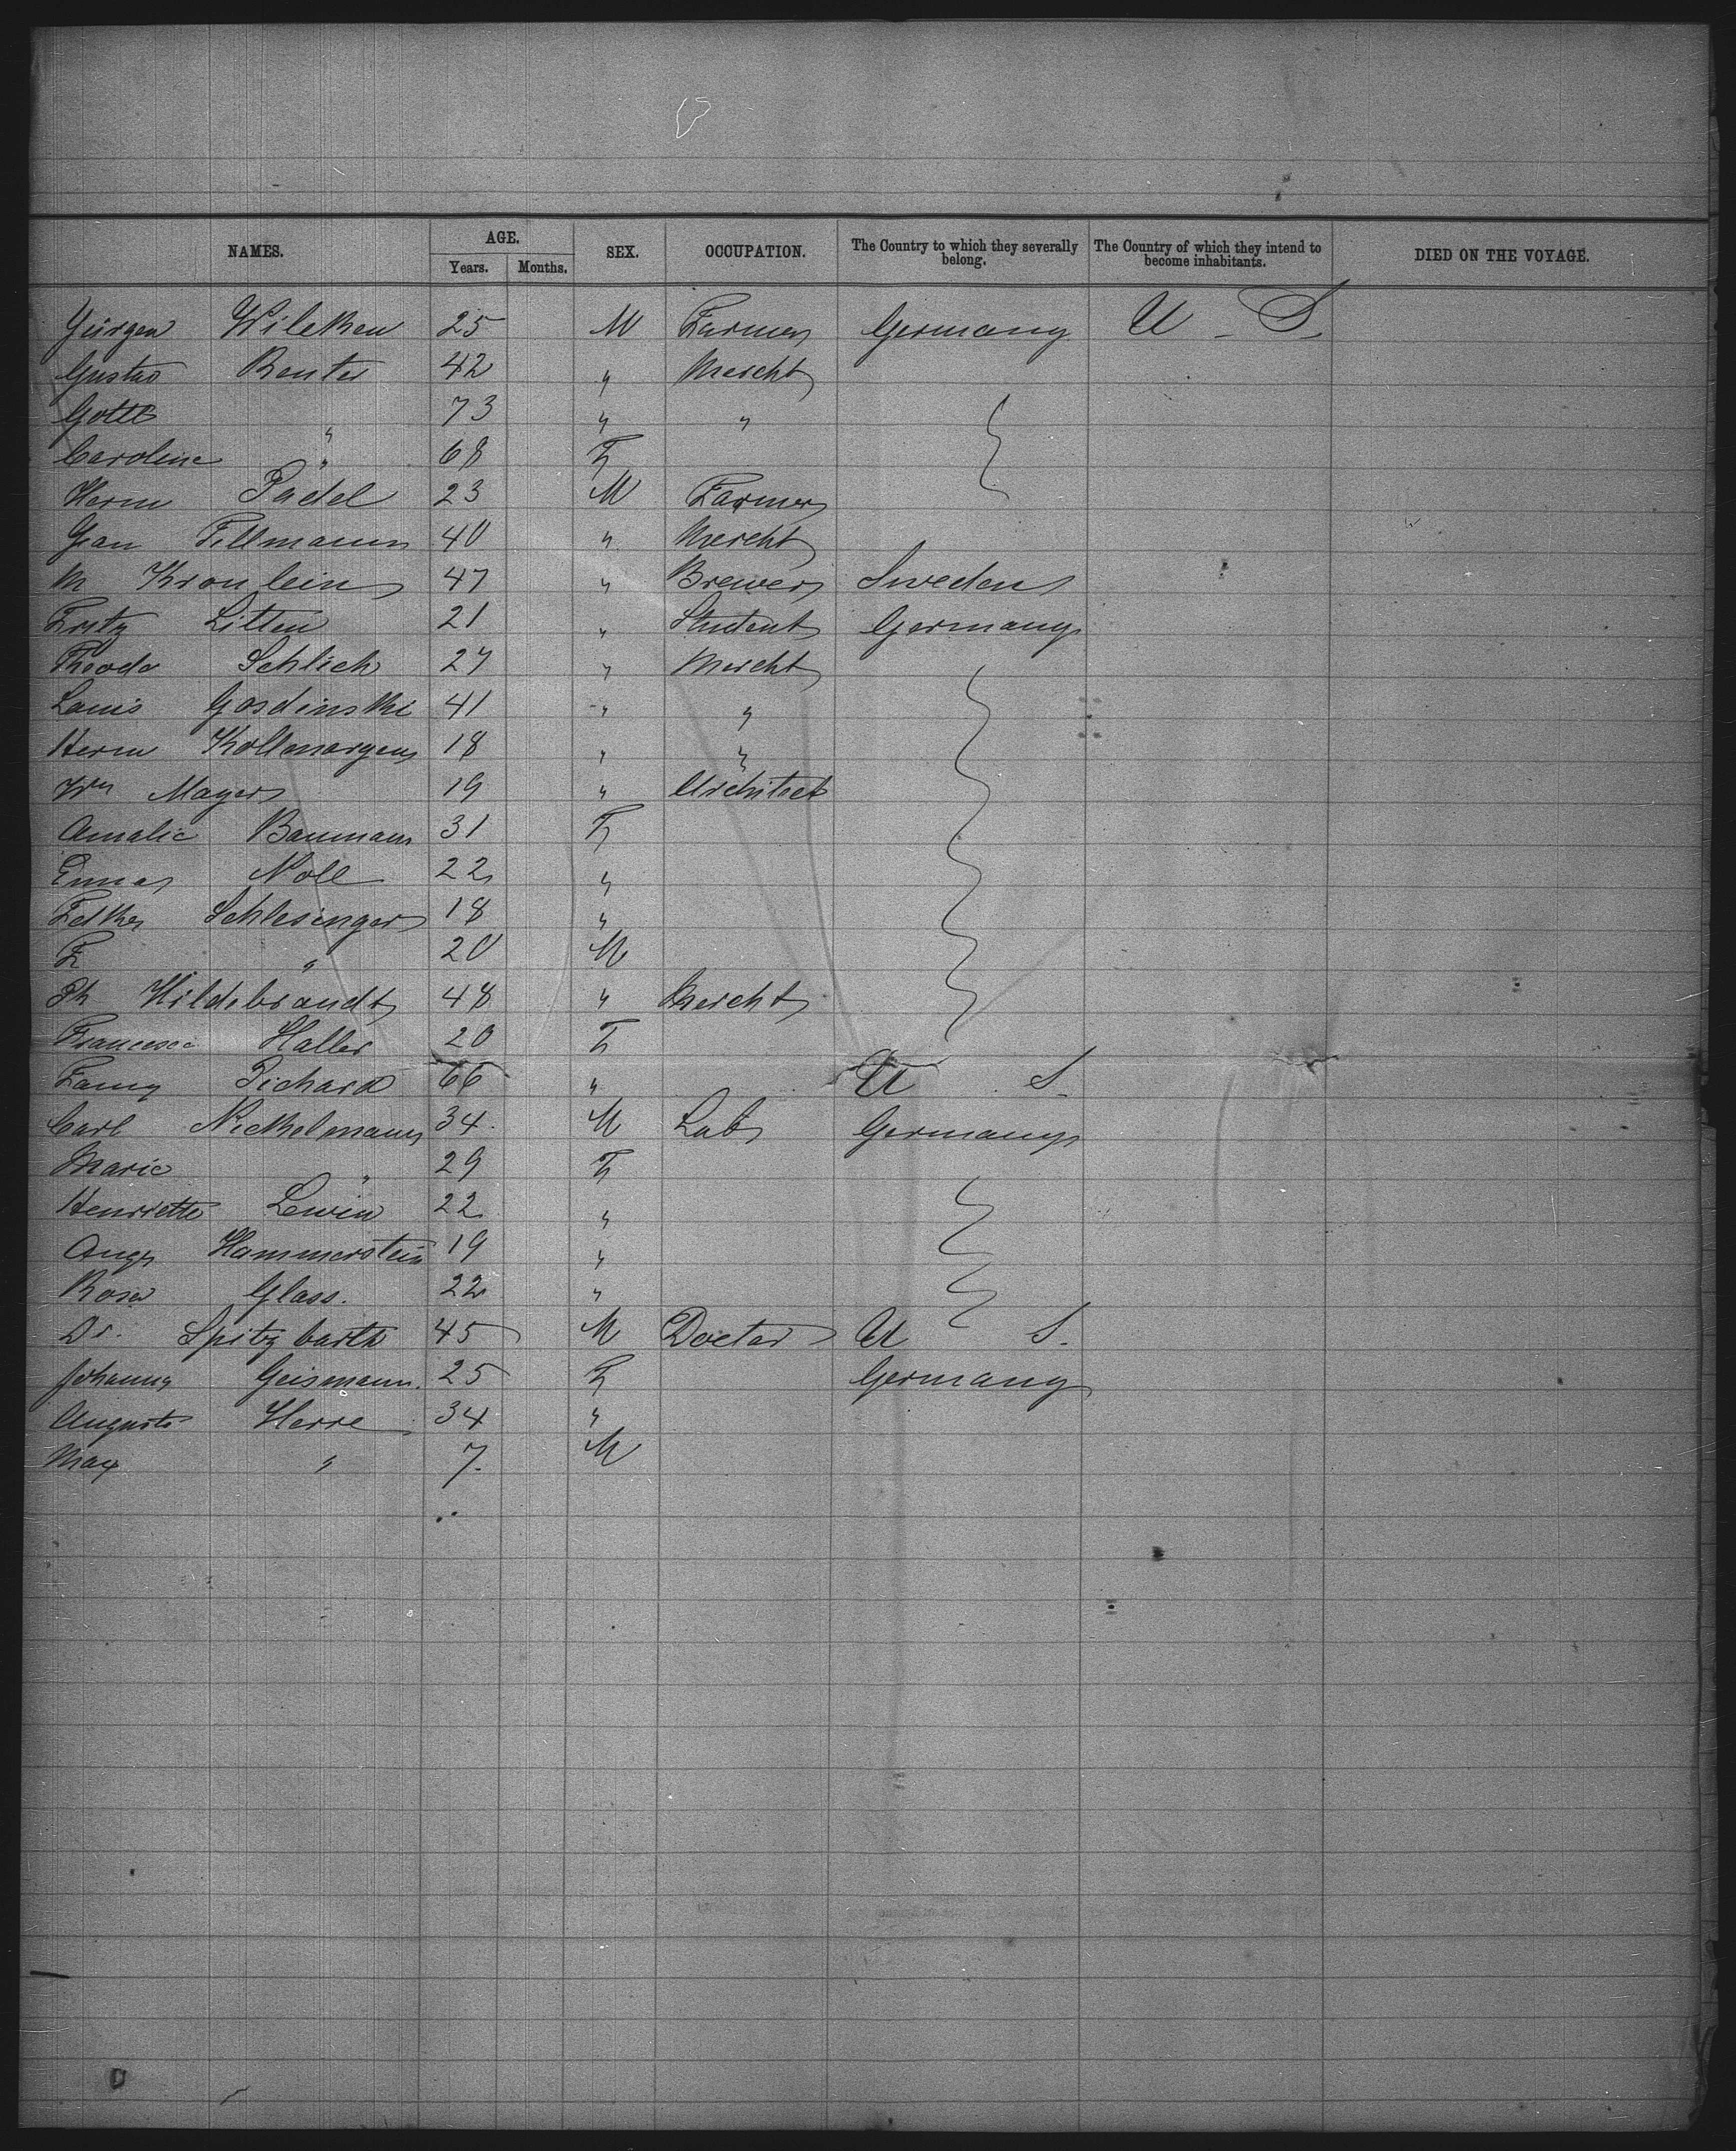 NAMES. AGE. SEX. OCCUPATION. The Country to which they severally belong. The Country of which they intend to become inhabitants. DIED ON THE VOYAGE.
Years. Months.
Jürgen Wilcken 25 M Farmer Germany U - S
Gustav Benter 42 " Mercht
Gottl " 73 " "
Caroline " 68 F
Herm Padel 23 M Farmer
Jean Tillmann 40 " Mercht
M Kronlein 47 " Brewer Sweden
Fritz Litten 21 " Student Germany
Theodo Schlich 27 " Mercht
Louis Gosdinski 41 " "
Herm Kollmorgen 18 " "
Wm Mayer 19 " Architect
Amalie Baumann 31 F
Emma Noll 22 "
Schlesinger 18 "
F " 20 M
Ph Hildebrandt 48 " Mercht
Francesca Haller 20 F
Fanny Pichard 66 " U S
Carl Nickelmann 34 M Lab Germany
Marie " 29 F
Henriette Lewin 22 "
Aug Hammerstein 19 "
Rosa Glass. 22 "
Dr. Spitzbarth 45 M Doctor U S.
Johanna Geismann. 25 F Germany
Auguste Herre 34 "
Max " 7. M